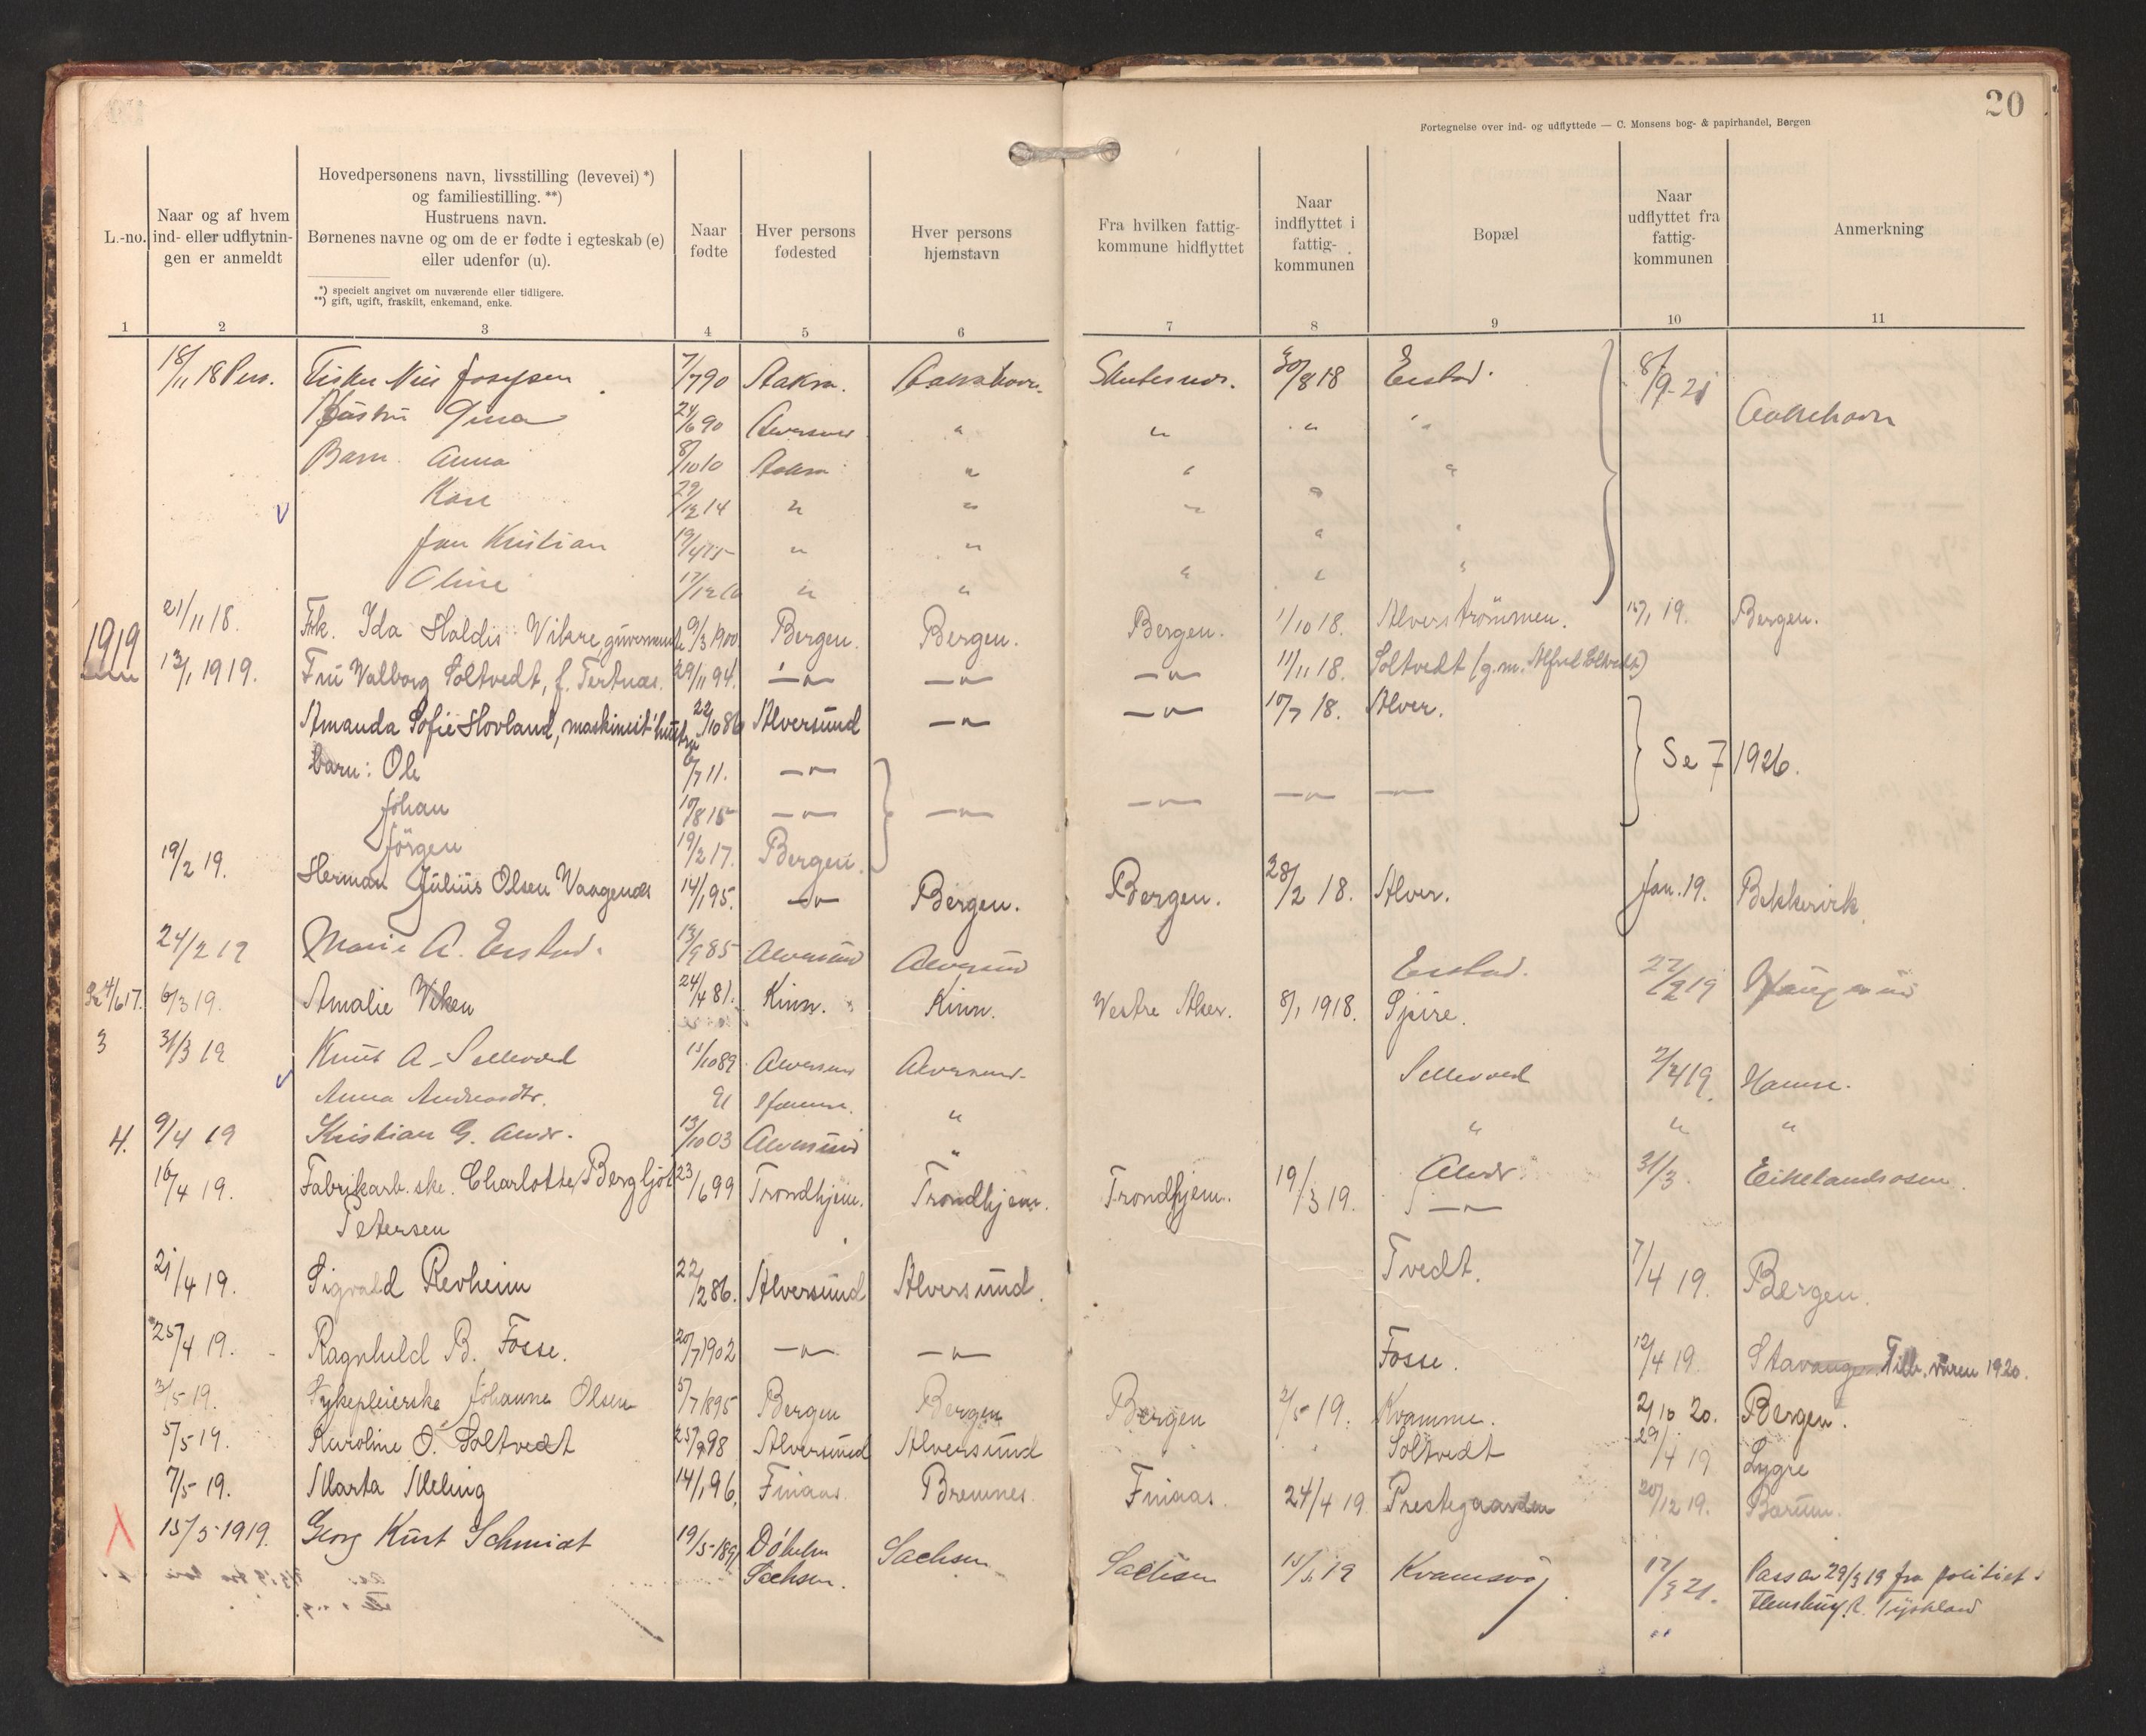 20
Fortegnelse over ind- og udflyttede — C. Monsens bog- & papirhandel, Bergen
L.-no.
Naar og af hvem
ind- eller udflytnin-
gen er anmeldt
Hovedpersonens navn, livsstilling (levevei) *)
og familiestilling. **)
Hustruens navn.
Børnenes navne og om de er fødte i egteskab (e)
eller udenfor (u).
*) specielt angivet om nuværende eller tidligere.
**) gift, ugift, fraskilt, enkemand, enke.
Naar
fødte
Hver persons
fødested
Hver persons
hjemstavn
Fra hvilken fattig-
kommune hidflyttet
Naar
indflyttet i
fattig-
kommunen
Bopæl
Naar
udflyttet fra
fattig-
kommunen
Anmerkning
1 2 3 4 5 6 7 8 9 10 11
18/11 18 Fisker Nils Josefsen 7/7 90 Aakra. 30/8 18 Eistad. 8/9-21
Hustru Gina 24/6 90 " " " " Aakrehavn
Barn. Anna 8/10 10 Aakra " " "
Kare 29/12 14 " " " "
Jan Kristian 19/4 15 " " " "
Oline 17/12 " " " " "
21/11 18. Frk. Ida Haldis Vikre, guvernante 9/3 1900 Bergen. Bergen. Bergen. 1/10 18. Alverströmmen. 15/1 19. Bergen.
1919
13/1 1919. Fru Valborg Soltvedt, f. Tertnæs. 29/11 94. —"— —"— —"— 11/11 18. Soltvedt (g.m. Alfred Soltvedt)
Amanda Sofie Hovland, maskinist hustru 22/10 86 Alversund —"— —"— 10/7 18. Alver.
barn: Ole 6/7 11. —"— Se 7 1926.
Johan 10/8 15 —"— —"— —"— —"— —"—
Jörgen 19/2 17. Bergen.
19/2 19. Herman Julius Olsen Vaagenæs 14/1 95. —"— Bergen. Bergen. 28/2 18. Alver. Jan. 19. Bekkervik
24/2 19 Marie A. Eistad. 13/9 85 Alversund Alversund Eistad. 22/2 19
Se 4/6 17. 6/3 19. Amalie Viken 24/4 81. Kinn. Kinn. Vestre Aker. 8/1 1918. Spire.
3 31/3 19 Knut A. Sellevold 11/10 89 Alversund Alversund Sellevold 2/4 19. Hamre.
Anna Andreasdtr. 91 Hamre. " " " "
4. 9/4 19 Kristian G. Alver. 13/10 03 Alversund " Alver 31/3. Eikelandsosen.
16/4 19. Fabrikarb.ske. Charlotte Bergljot 23/6 99 Trondhjem. Trondhjem. Trondhjem. 19/3 19. —"—
Petersen
21/4 19. Sigvald Revheim 22/2 86. Alversund Alversund. Tvedt. 7/4 19. Bergen.
25/4 19. Ragnhild B. Fosse. 20/7 1902 —"— —"— Fosse. 12/4 19. Stavanger. Tilb. våren 1920.
3/5 19. Sykepleierske Johanne Olsen 5/7 1895 Bergen Bergen Bergen 2/5 19. Kvamme. 2/10 20. Bergen.
5/5 19. Karoline O. Soltvedt 25/9 98 Alversund Alversund Soltvedt 29/4 19 Lygre
7/5 19. Marta Meling 14/1 96. Finaas. Bremnes. Finaas. 24/4 19 Prestegaarden 20/12 19. Bærum.
15/5-1919. Georg Kurt Schmidt 19/5-1891 Döbeln Sachsen Sachsen 15/5 19 Kvamsvåg 17/3 21. Pass av 29/3 19 fra politiet i
Sachsen. Flensburg. Tyskland